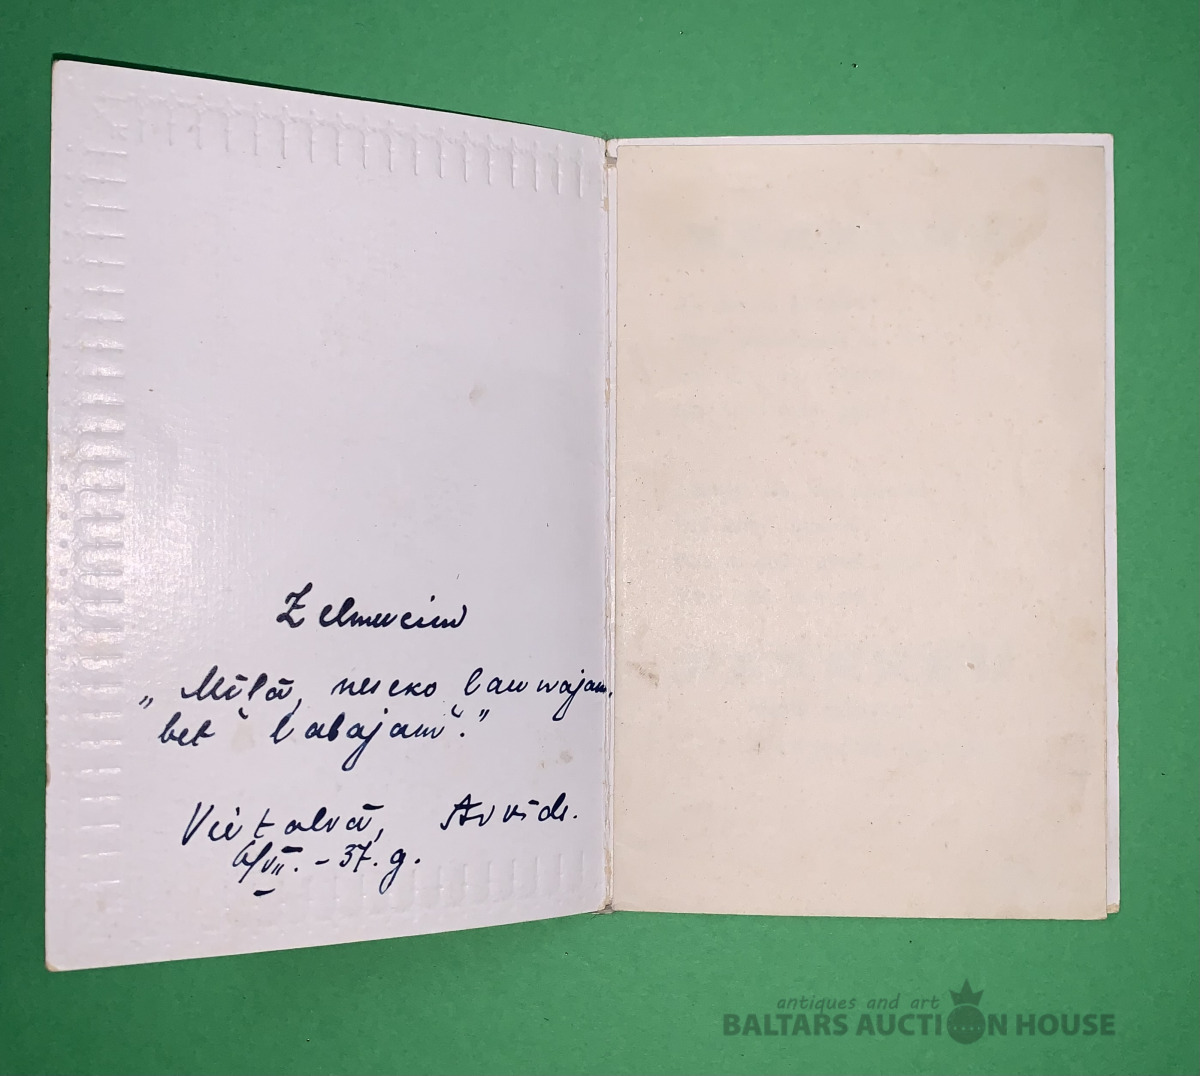 Zelmucim
„Mīlā, neieko ļaunajam,
bet labajam."
Vietalvā, Arvīds.
6/VII. - 37. g.
antiques and art
BALTARS AUCTION HOUSE